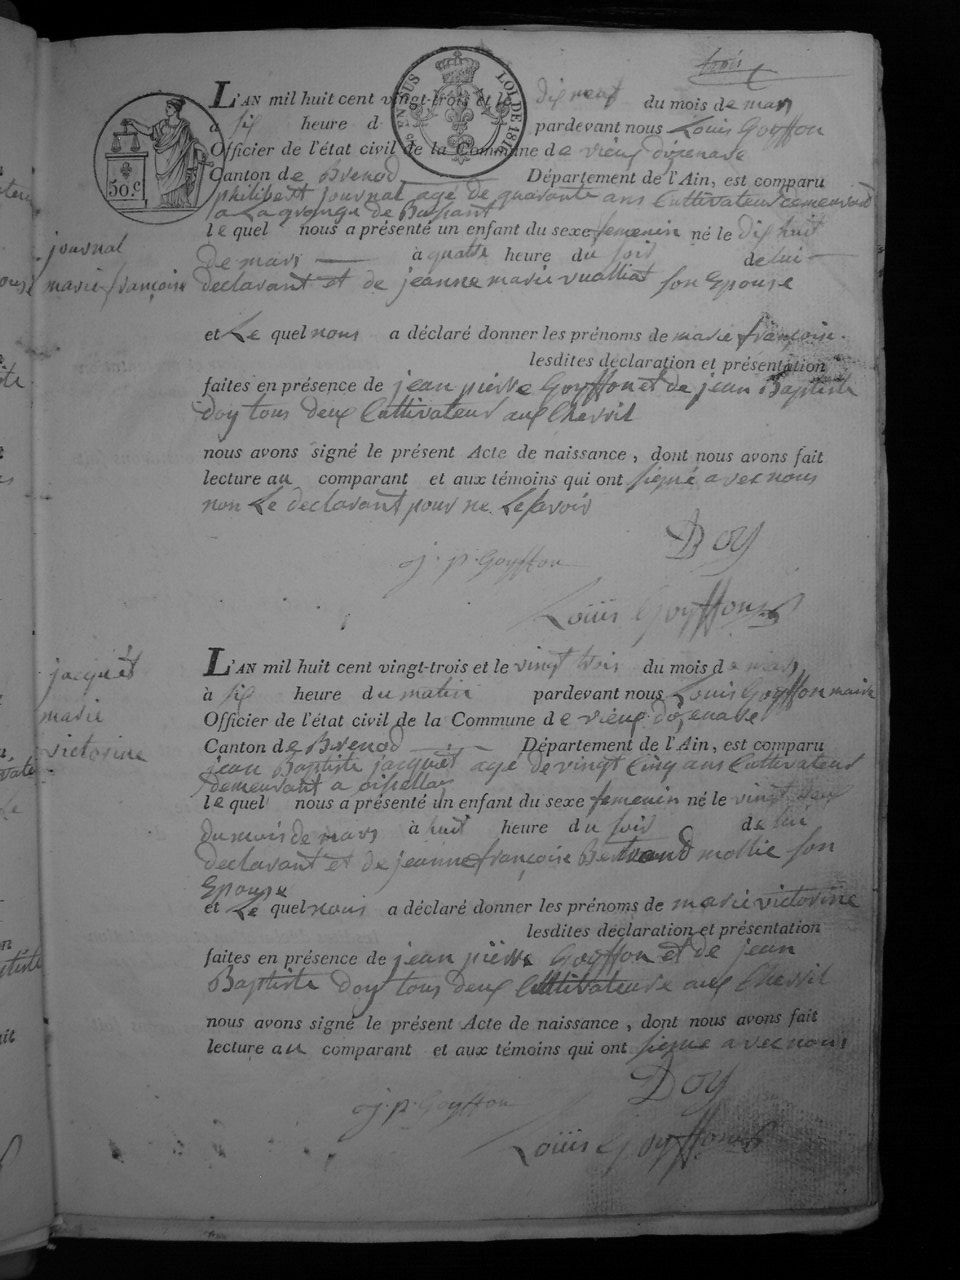 trois
EN SUS
LOI DE 1816
30 c
L'AN mil huit cent vingt-trois et le dix neuf du mois de mars
à six heure d pardevant nous Louis Goyffon
Officier de l'état civil de la Commune de vieux d'izenave
Canton de Brenod Département de l'Ain, est comparu
philibert journal agé de quarante ans Cultivateur demeurant
a La grange de
le quel nous a présenté un enfant du sexe femenin né le dix huit
journal
de mars à quatre heure du soir de lui
marie françoise
declarant et de jeanne marie vualliat son Epouse
et Le quel nous a déclaré donner les prénoms de marie françoise.
lesdites déclaration et présentation
faites en présence de jean pierre Goyffon et de jean Baptiste
Doy tous deux Cultivateur aux
nous avons signé le présent Acte de naissance, dont nous avons fait
lecture au comparant et aux témoins qui ont signé avec nous
non Le declarant pour ne Le savoir
Doy
j. p. Goyffon
Loüis Goyffon
L'AN mil huit cent vingt-trois et le vingt trois du mois de mars
jacquet
à six heure du matin pardevant nous Louis Goyffon maire
marie
Officier de l'état civil de la Commune de vieux d'izenave
victorine
Canton de Brenod Département de l'Ain, est comparu
jean Baptiste jacquet agé de vingt Cinq ans Cultivateur
demeurant a
le quel nous a présenté un enfant du sexe femenin né le vingt deux
du mois de mars à huit heure du soir de lui
declarant et de jeanne françoise Bertrand mollie son
Epouse
et Le quel nous a déclaré donner les prénoms de marie victorine
lesdites déclaration et présentation
faites en présence de jean pierre Goyffon et de jean
Baptiste Doy tous deux Cultivateurs aux
nous avons signé le présent Acte de naissance, dont nous avons fait
lecture au comparant et aux témoins qui ont signé avec nous
Doy
j. p. Goyffon
Loüis Goyffon